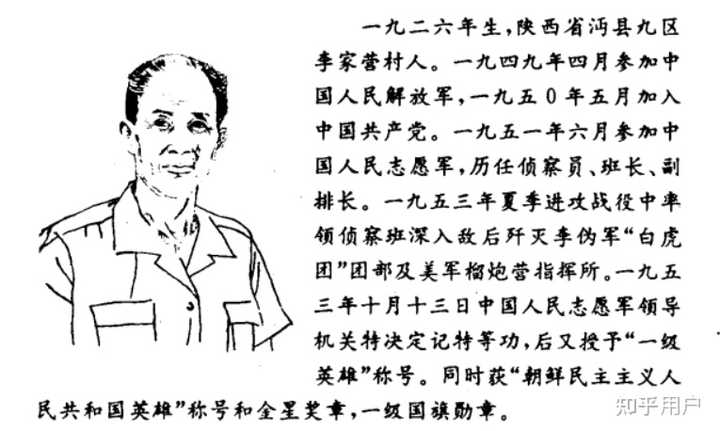 一九二六年生，陕西省沔县九区
李家营村人。一九四九年四月参加中
国人民解放军，一九五0年五月加入
中国共产党。一九五一年六月参加中
国人民志愿军，历任侦察员、班长、副
排长。一九五三年夏季进攻战役中率
领侦察班深入敌后歼灭李伪军“白虎
团”团部及美军榴炮营指挥所。一九五
三年十月十三日中国人民志愿军领导
机关特决定记特等功，后又授予“一级
英雄”称号。同时获“朝鲜民主主义人
民共和国英雄”称号和金星奖章，一级国旗勋章。
知乎用户